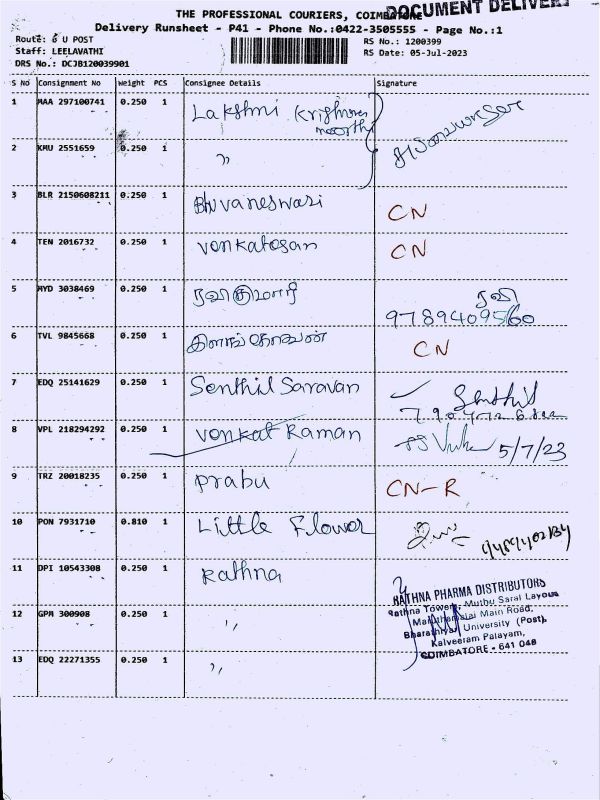 THE PROFESSIONAL COURIERS, COIMBATORE
DOCUMENT DELIVERY
Delivery Runsheet - P41 - Phone No.:0422-3505555 - Page No.:1
Route: B U POST
RS No.: 1200399
Staff: LEELAVATHI
RS Date: 05-Jul-2023
DRS No.: DCJB120039901
S No Consignment No Weight PCS Consignee Details Signature
1 MAA 297100741 0.250 1 Lakshmi Krishna
moorthi
2 KMU 2551659 0.250 1 "
3 BLR 2150608211 0.250 1 Bhuvaneswari CN
4 TEN 2016732 0.250 1 Venkatesan CN
5 MYD 3038469 0.250 1 ரவிகுமார் ரவி
9789409560
6 TVL 9845668 0.250 1 இளங்கோவன் CN
7 EDQ 25141629 0.250 1 Senthil Saravan Senthil
8 VPL 218294292 0.250 1 Venkat Raman 5/7/23
9 TRZ 20018235 0.250 1 Prabu CN-R
10 PON 7931710 0.810 1 Little Flower
11 DPI 10543308 0.250 1 Rathna
RATHNA PHARMA DISTRIBUTORS
Rathna Towers, Muthu Saral Layout
12 GPM 300908 0.250 1 "
Maruthamalai Main Road,
Bharathiyar University (Post),
Kalveeram Palayam,
COIMBATORE - 641 046
13 EDQ 22271355 0.250 1 "